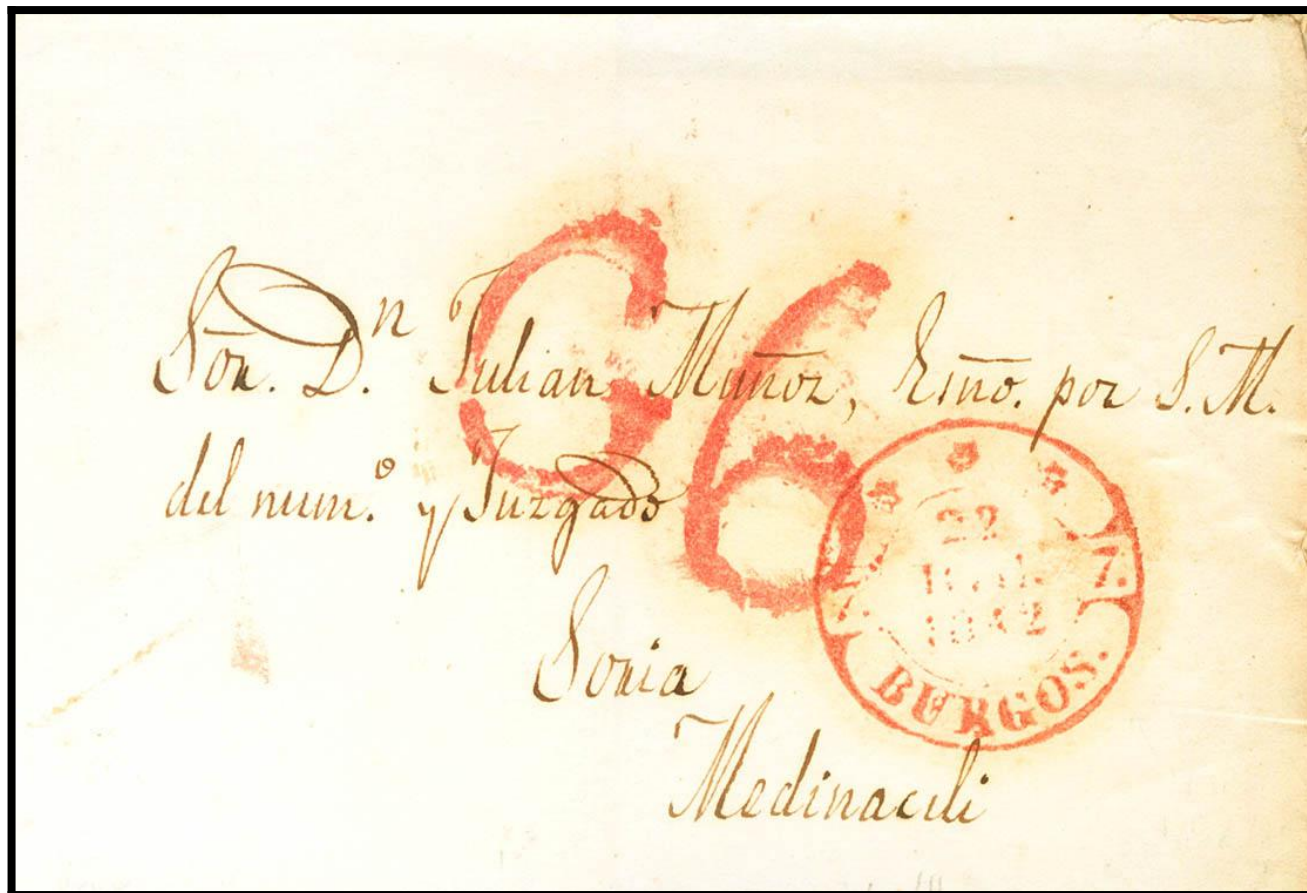 Sõr. D.n Julian Muñoz, Esño. por S. M.
del num.º y Juzgado
Soria
Medinaceli
66
22
BURGOS.